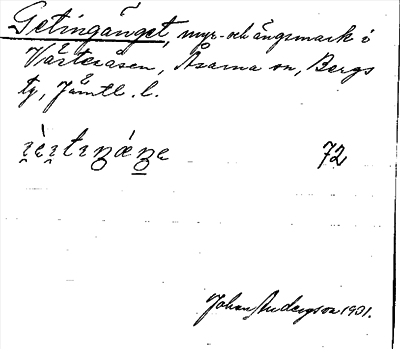 Getingänget, myr- och ängsmark i
Värteråsen, Åsarna sn, Bergs
tg, Jämtl. l.
72
Johan Andersson 1931.